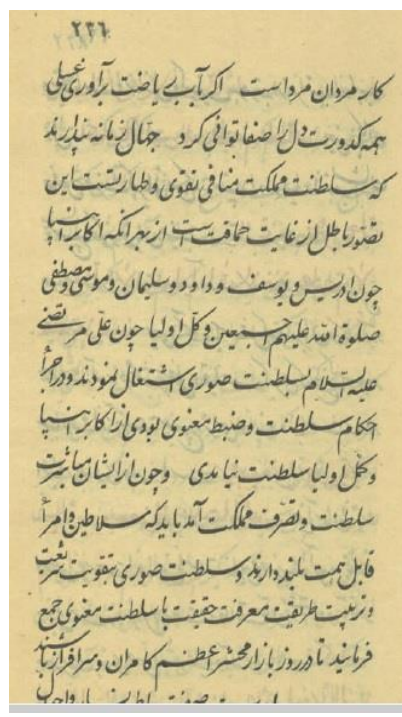 ۲۳۶
کار مردان مرد است اگر بآب ریاضت برآوری غسلی
همه کدورت دل را صفا توانی کرد جهال زمانه پندارند
که سلطنت مملکت منافی تقوی و طهارتست این
تصور باطل از غایت حماقت است از بهر آنکه اکابر انبیا
چون ادریس و یوسف و داود و سلیمان و موسی و مصطفی
صلوة الله علیهم اجمعین و کل اولیا چون علی مرتضی
علیه السلام بسلطنت صوری اشتغال نمودند و در اجرأ
احکام سلطنت و ضبط معنوی بودی از اکابر انبیا
و کمل اولیا سلطنت نیامدی و چون از ایشان مباشرت
سلطنت و تصرف مملکت آمد باید که سلاطین و امرأ
قابل همت بلند دارند و سلطنت صوری بتقویت شریعت
و تربیت طریقت معرفت حقیقت با سلطنت معنوی جمع
فرمایند تا در روز بازار محشر اعظم کامران و سرافراز باشند